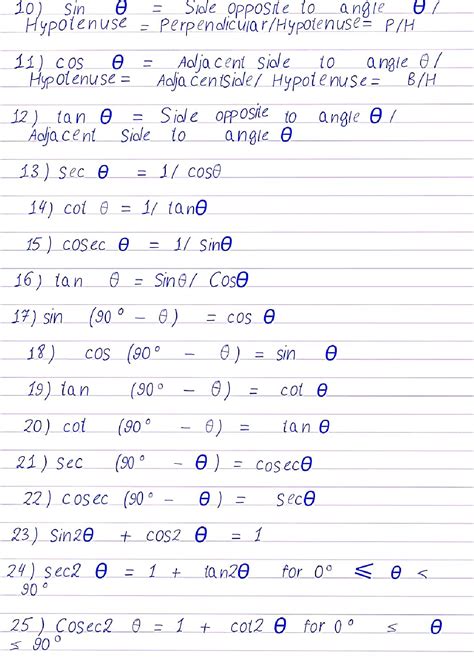 10) sin θ = Side opposite to angle θ /
Hypotenuse = Perpendicular/Hypotenuse= P/H
11) cos θ = Adjacent side to angle θ/
Hypotenuse= Adjacentside/ Hypotenuse= B/H
12) tan θ = Side opposite to angle θ /
Adjacent Side to angle θ
13) sec θ = 1/ cosθ
14) cot θ = 1/ tanθ
15) cosec θ = 1/ sinθ
16) tan θ = Sinθ/ Cosθ
17) sin (90° - θ) = cos θ
18) cos (90° - θ) = sin θ
19) tan (90° - θ) = cot θ
20) cot (90° - θ) = tan θ
21) sec (90° - θ) = cosecθ
22) cosec (90° - θ) = secθ
23) Sin2θ + cos2 θ = 1
24) sec2 θ = 1 + tan2θ for 0° ≤ θ <
90°
25) Cosec2 θ = 1 + cot2 θ for 0° ≤ θ
≤ 90°